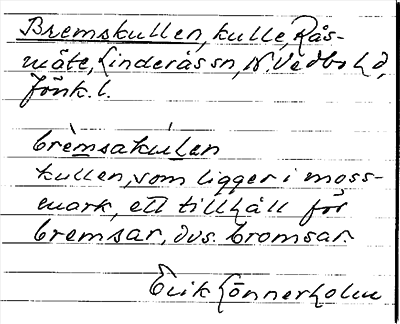 Bremskullen, kulle, Rås-
måte, Linderås sn, N. Vedbo hd,
Jönk. l.
brèmsakúlen
kullen, som ligger i moss-
mark, ett tillhåll för
bremsar, dvs. bromsar.
Erik Lönnerholm